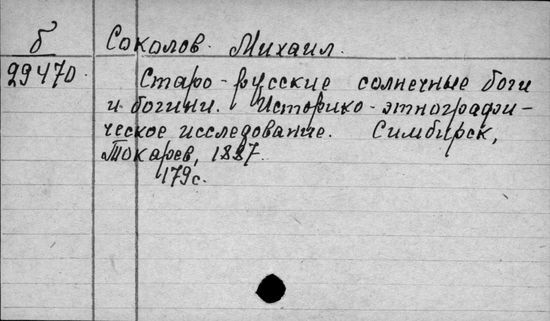 б Соколов Михаил.
29470. Старо-русские солнечные боги
и богини. Историко-этнографи-
ческое исследование. Симбирск,
Токарев, 1887.
179с.